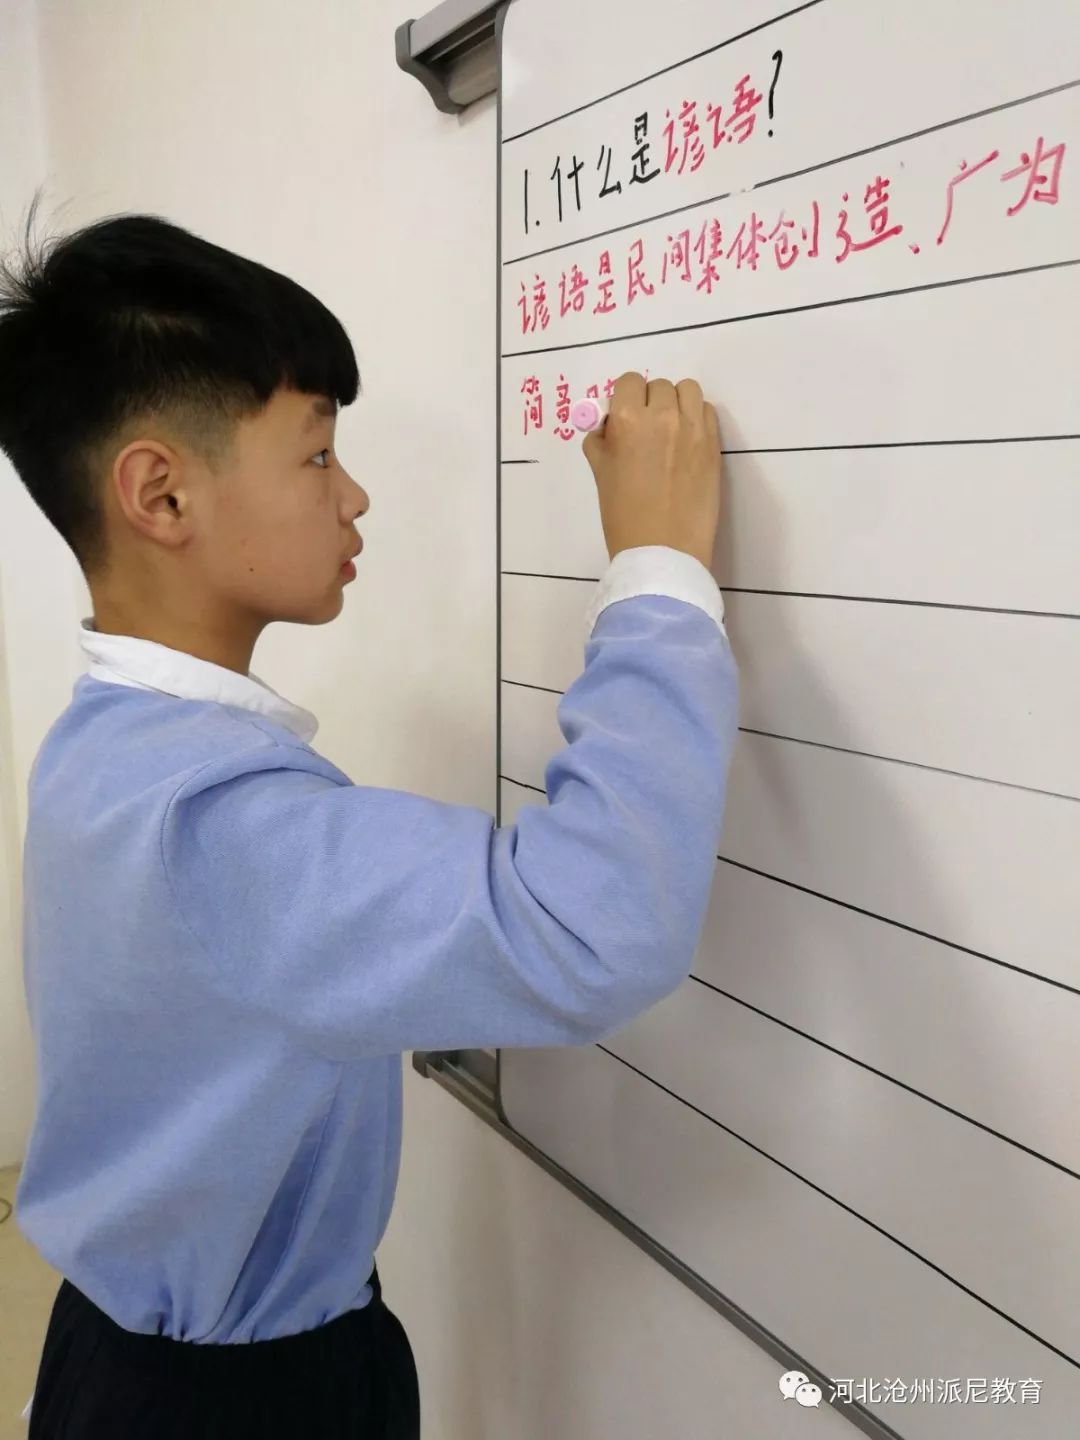 1.什么是谚语?
谚语是民间集体创造、广为
简意
河北沧州派尼教育